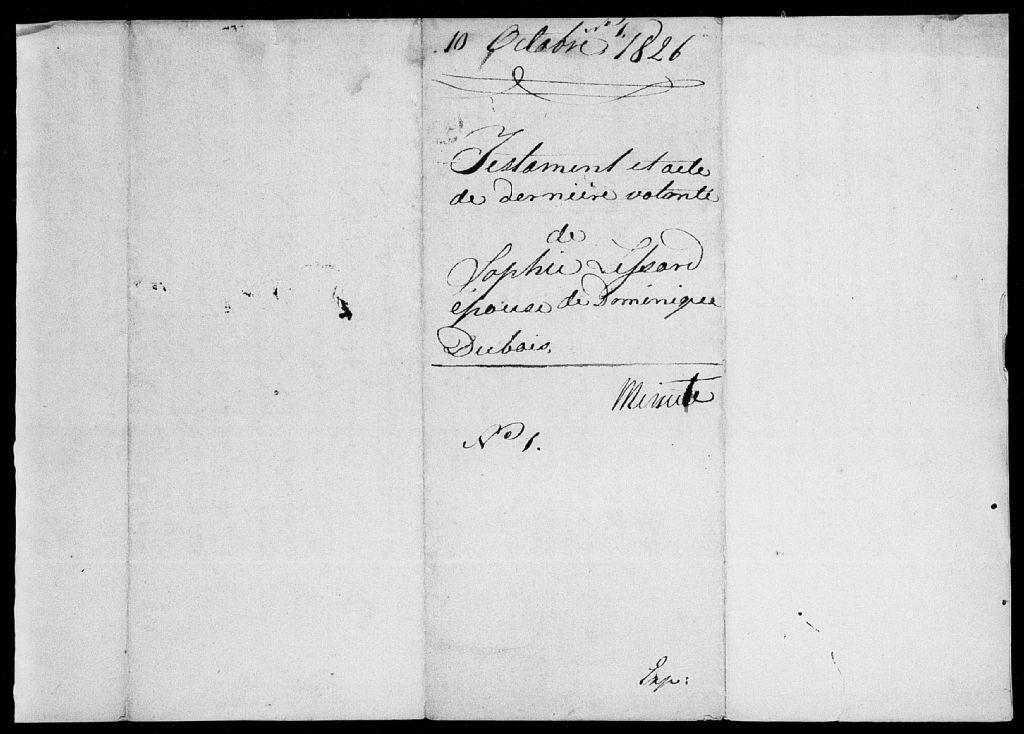 No 1.
10 Octobre 1826
Testament et acte
de dernière volonté
de
Sophie Lessard
épouse de Doménique
Dubois.
Minute
No 1.
Exp: